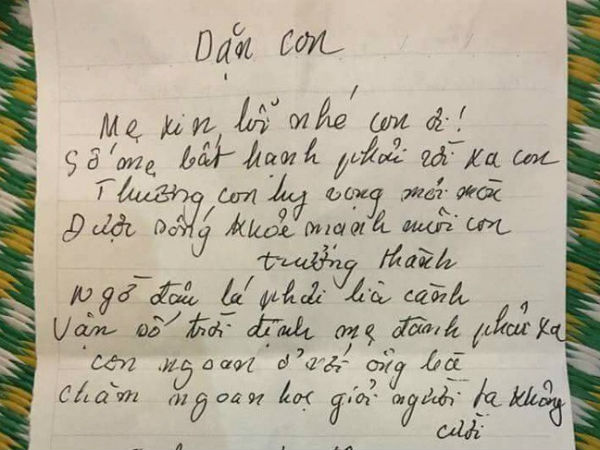 Dặn con
Mẹ xin lỗi nhé con ơi!
Số mẹ bất hạnh phải rời xa con
Thương con hy vọng mỏi mòn
Được sống khỏe mạnh nuôi con
trưởng thành
Ngờ đâu lá phải lìa cành
Vận số trời định mẹ đành phải xa
Con ngoan ở với ông bà
Chăm ngoan học giỏi người ta không
cười